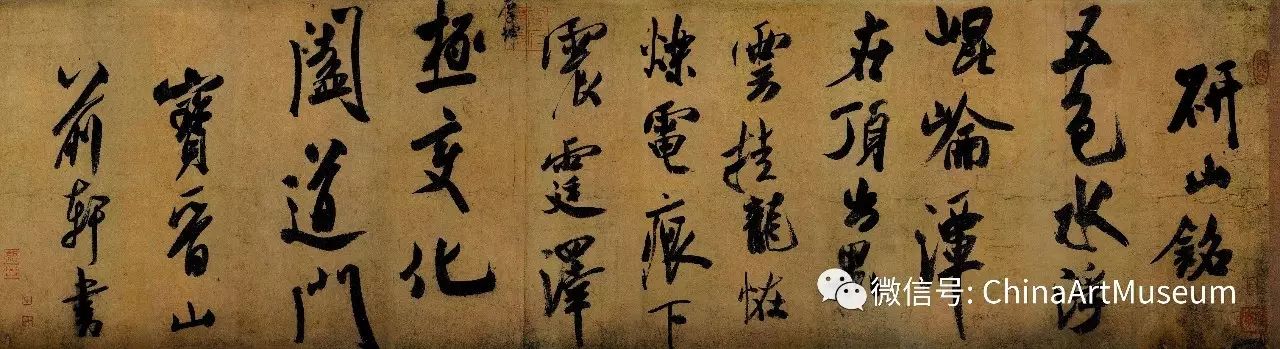 研山銘
五色水浮
崐崘潭
在頂出黑
雲挂龍恠
爍電痕下
震霆澤
厚坤
極变化
闔道門
寶晉山
前軒書
微信号: ChinaArtMuseum